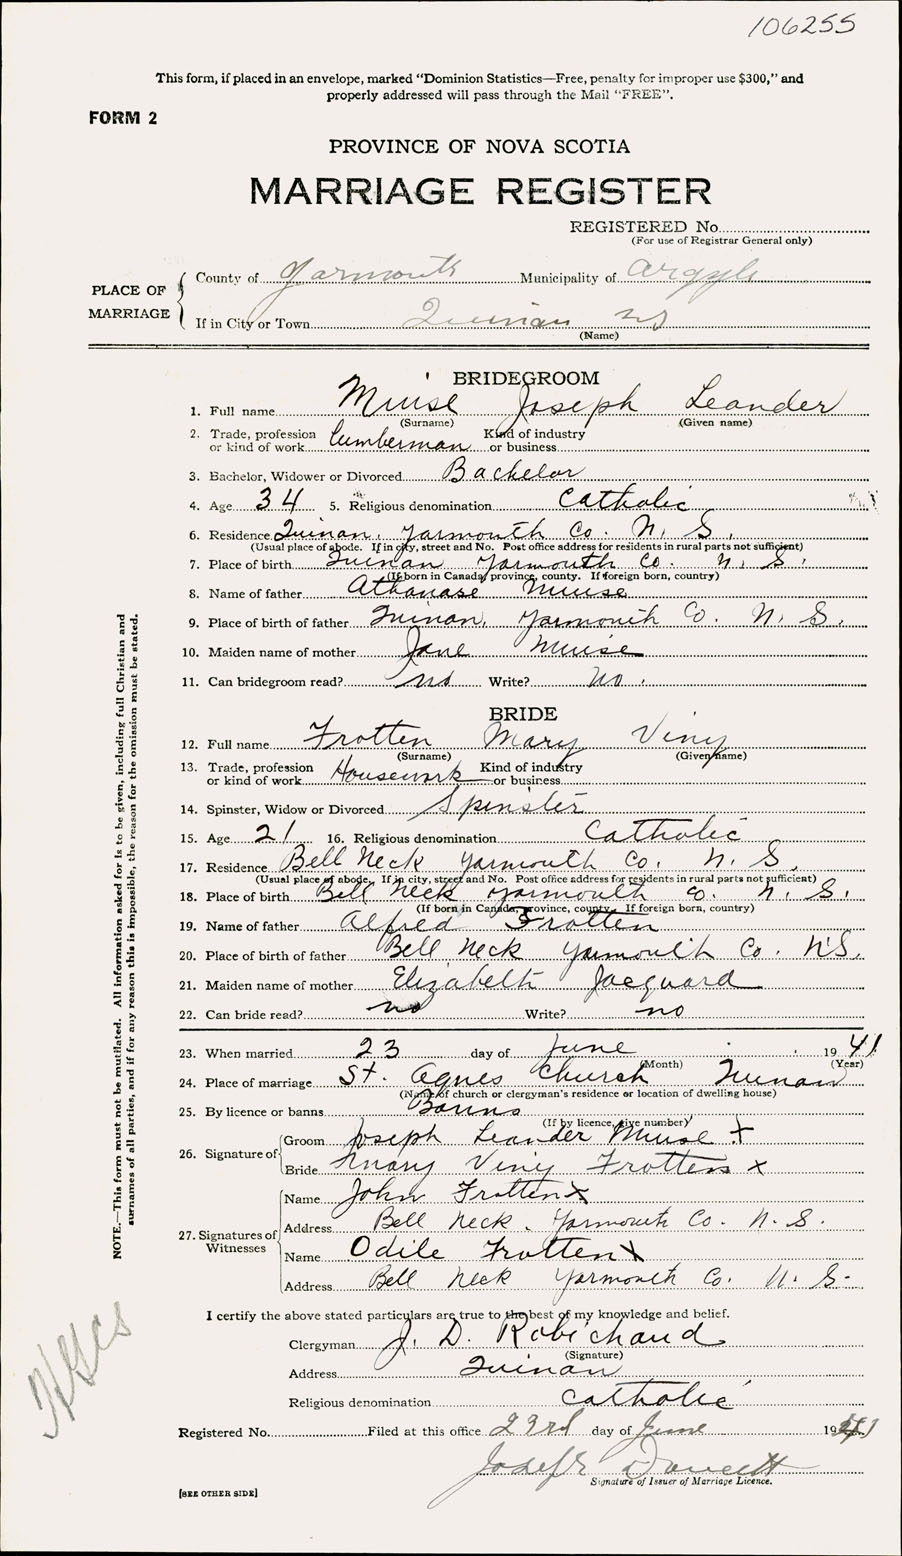 106255
This form, if placed in an envelope, marked "Dominion Statistics—Free, penalty for improper use $300," and
properly addressed will pass through the Mail "FREE".
FORM 2
PROVINCE OF NOVA SCOTIA
MARRIAGE REGISTER
REGISTERED No.
(For use of Registrar General only)
PLACE OF MARRIAGE
County of Yarmouth Municipality of Argyle
If in City or Town Quinan NS
(Name)
BRIDEGROOM
1. Full name Muise Joseph Leander
(Surname) (Given name)
2. Trade, profession or kind of work Lumberman Kind of industry or business
3. Bachelor, Widower or Divorced Bachelor
4. Age 34 5. Religious denomination Catholic
6. Residence Quinan, Yarmouth Co. N. S.
(Usual place of abode. If in city, street and No. Post office address for residents in rural parts not sufficient)
7. Place of birth Quinan Yarmouth Co. N. S.
(If born in Canada, province, county. If foreign born, country)
8. Name of father Athanase Muise
9. Place of birth of father Quinan, Yarmouth Co. N. S.
10. Maiden name of mother Jane Muise
11. Can bridegroom read? no Write? no.
BRIDE
12. Full name Frotten Mary Viny
(Surname) (Given name)
13. Trade, profession or kind of work Housework Kind of industry or business
14. Spinster, Widow or Divorced Spinster
15. Age 21 16. Religious denomination Catholic
17. Residence Bell Neck Yarmouth Co. N. S.
(Usual place of abode. If in city, street and No. Post office address for residents in rural parts not sufficient)
18. Place of birth Bell Neck Yarmouth Co. N. S.
(If born in Canada, province, county. If foreign born, country)
19. Name of father Alfred Frotten
20. Place of birth of father Bell Neck Yarmouth Co. N.S.
21. Maiden name of mother Elizabeth Jacquard
22. Can bride read? no Write? no
23. When married 23 day of June 1941
(Month) (Year)
24. Place of marriage St. Agnes Church Quinan
(Name of church or clergyman's residence or location of dwelling house)
25. By licence or banns Banns
(If by licence, give number)
26. Signature of
Groom Joseph Leander Muise +
Bride Mary Viny Frotten x
27. Signatures of Witnesses
Name John Frotten x
Address Bell Neck, Yarmouth Co. N. S.
Name Odile Frotten x
Address Bell Neck Yarmouth Co. N. S.
I certify the above stated particulars are true to the best of my knowledge and belief.
Clergyman J. D. Robichaud
(Signature)
Address Quinan
Religious denomination Catholic
Registered No. Filed at this office 23rd day of June 1941
Joseph Doucett
Signature of Issuer of Marriage Licence.
[SEE OTHER SIDE]
NOTE.—This form must not be mutilated. All information asked for is to be given, including full Christian and
surnames of all parties, and if for any reason this is impossible, the reason for the omission must be stated.